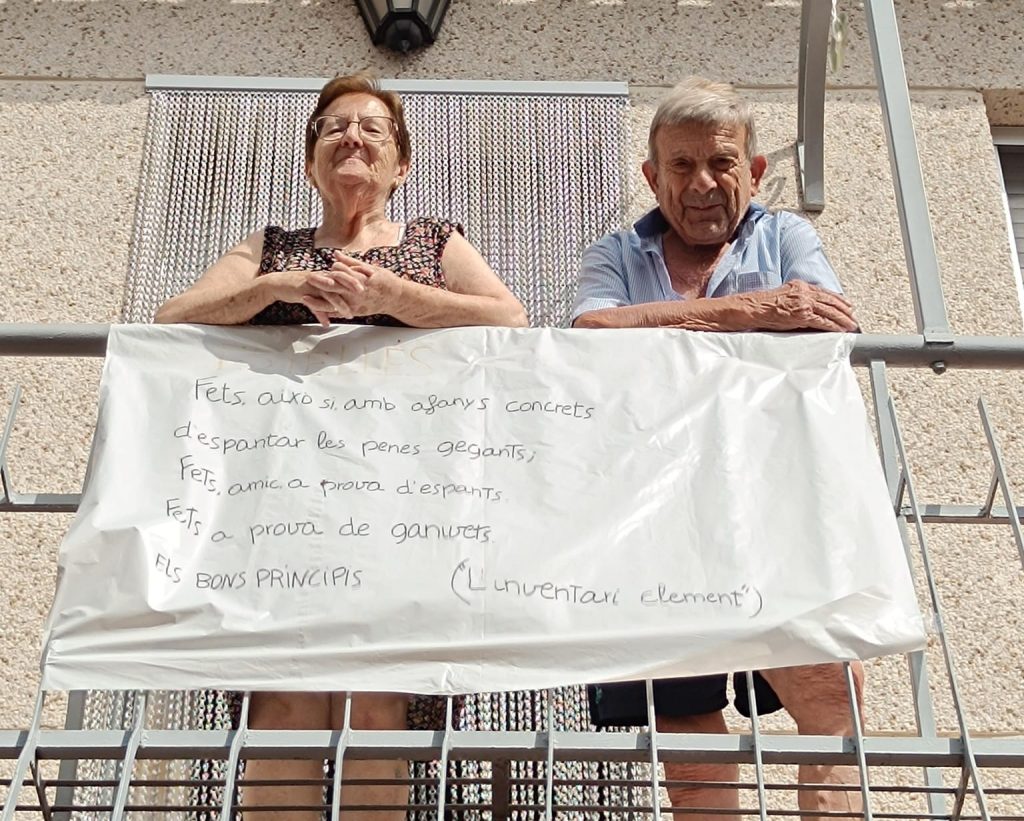 Fets, això si, amb afanys concrets
d'espantar les penes gegants;
Fets, amic, a prova d'espants.
Fets a prova de ganivets.
ELS BONS PRINCIPIS ("L'inventari clement")